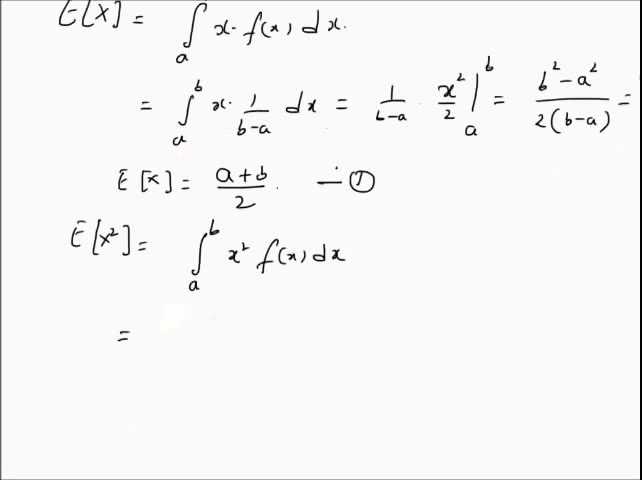 E[X] = ∫ₐ x. f(x) dx.
= ∫ₐᵇ x. 1/(b-a) dx = 1/(b-a) . x²/2 |ₐᵇ = (b² - a²)/(2(b-a)) =
E[x] = (a+b)/2. — ①
E[X²] = ∫ₐᵇ x² f(x) dx
=